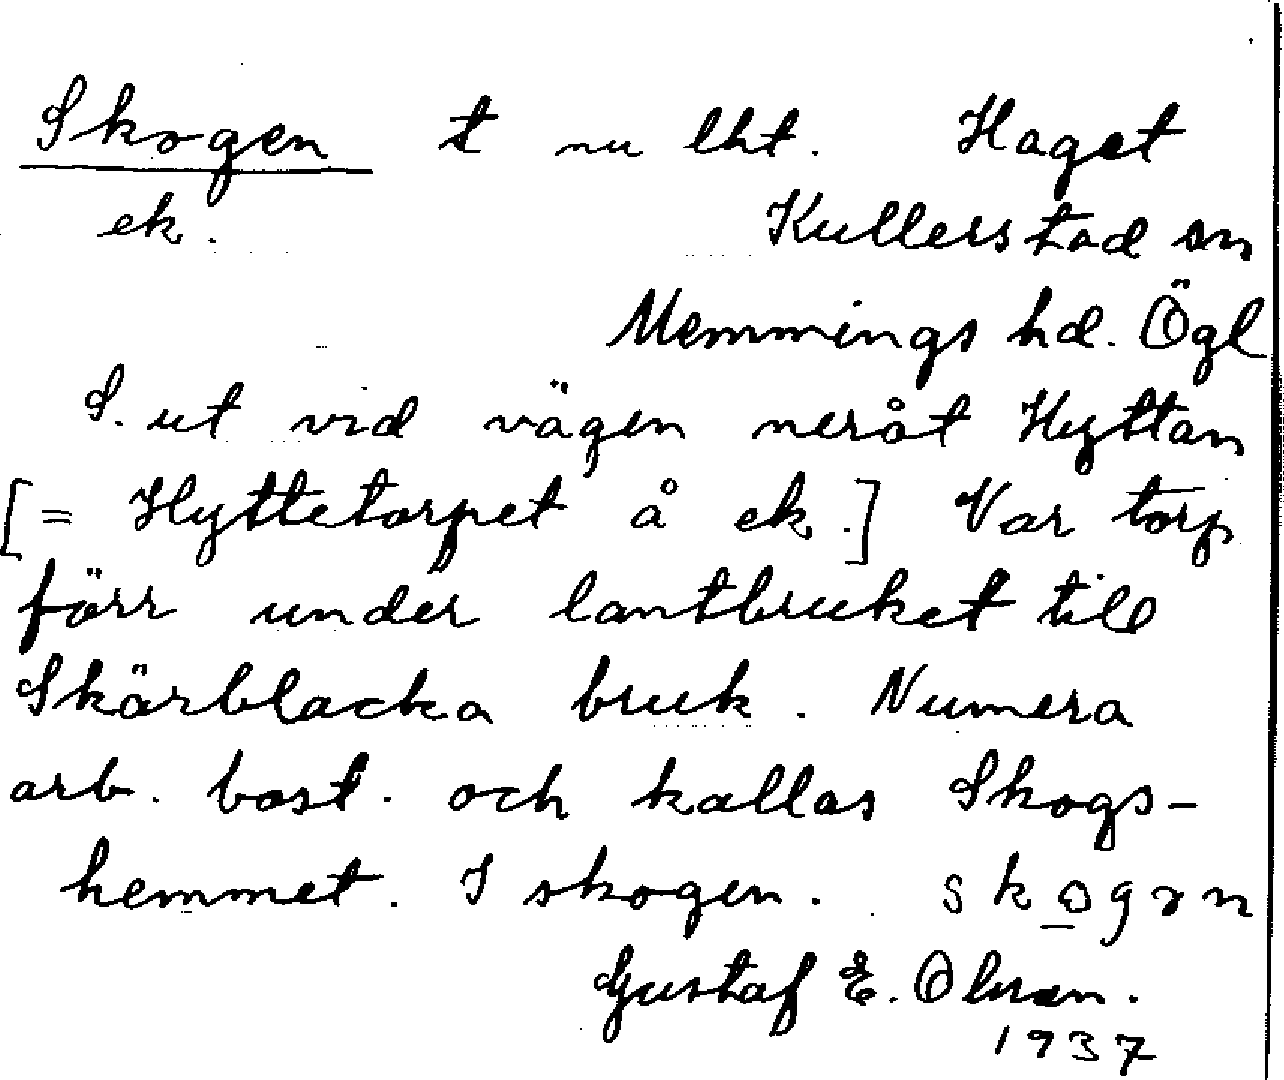 Skogen t nu lht. Haget
ek. Kullerstad sn
Memmings hd. Ögl
S. ut vid vägen neråt Hyttan
[= Hyttetorpet å ek.] Var torp
förr under lantbruket till
Skärblacka bruk. Numera
arb. bost. och kallas Skogs-
hemmet. I skogen. skogɜn
Gustaf E. Olsson.
1937